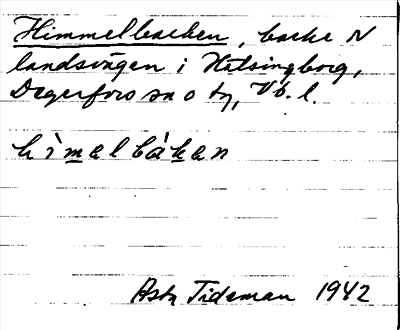 Himmelbacken, backe N
landsvägen i Hälsingborg,
Degerfors sn o ty, Vb. l.
hìmelbákan
Asta Tideman 1942